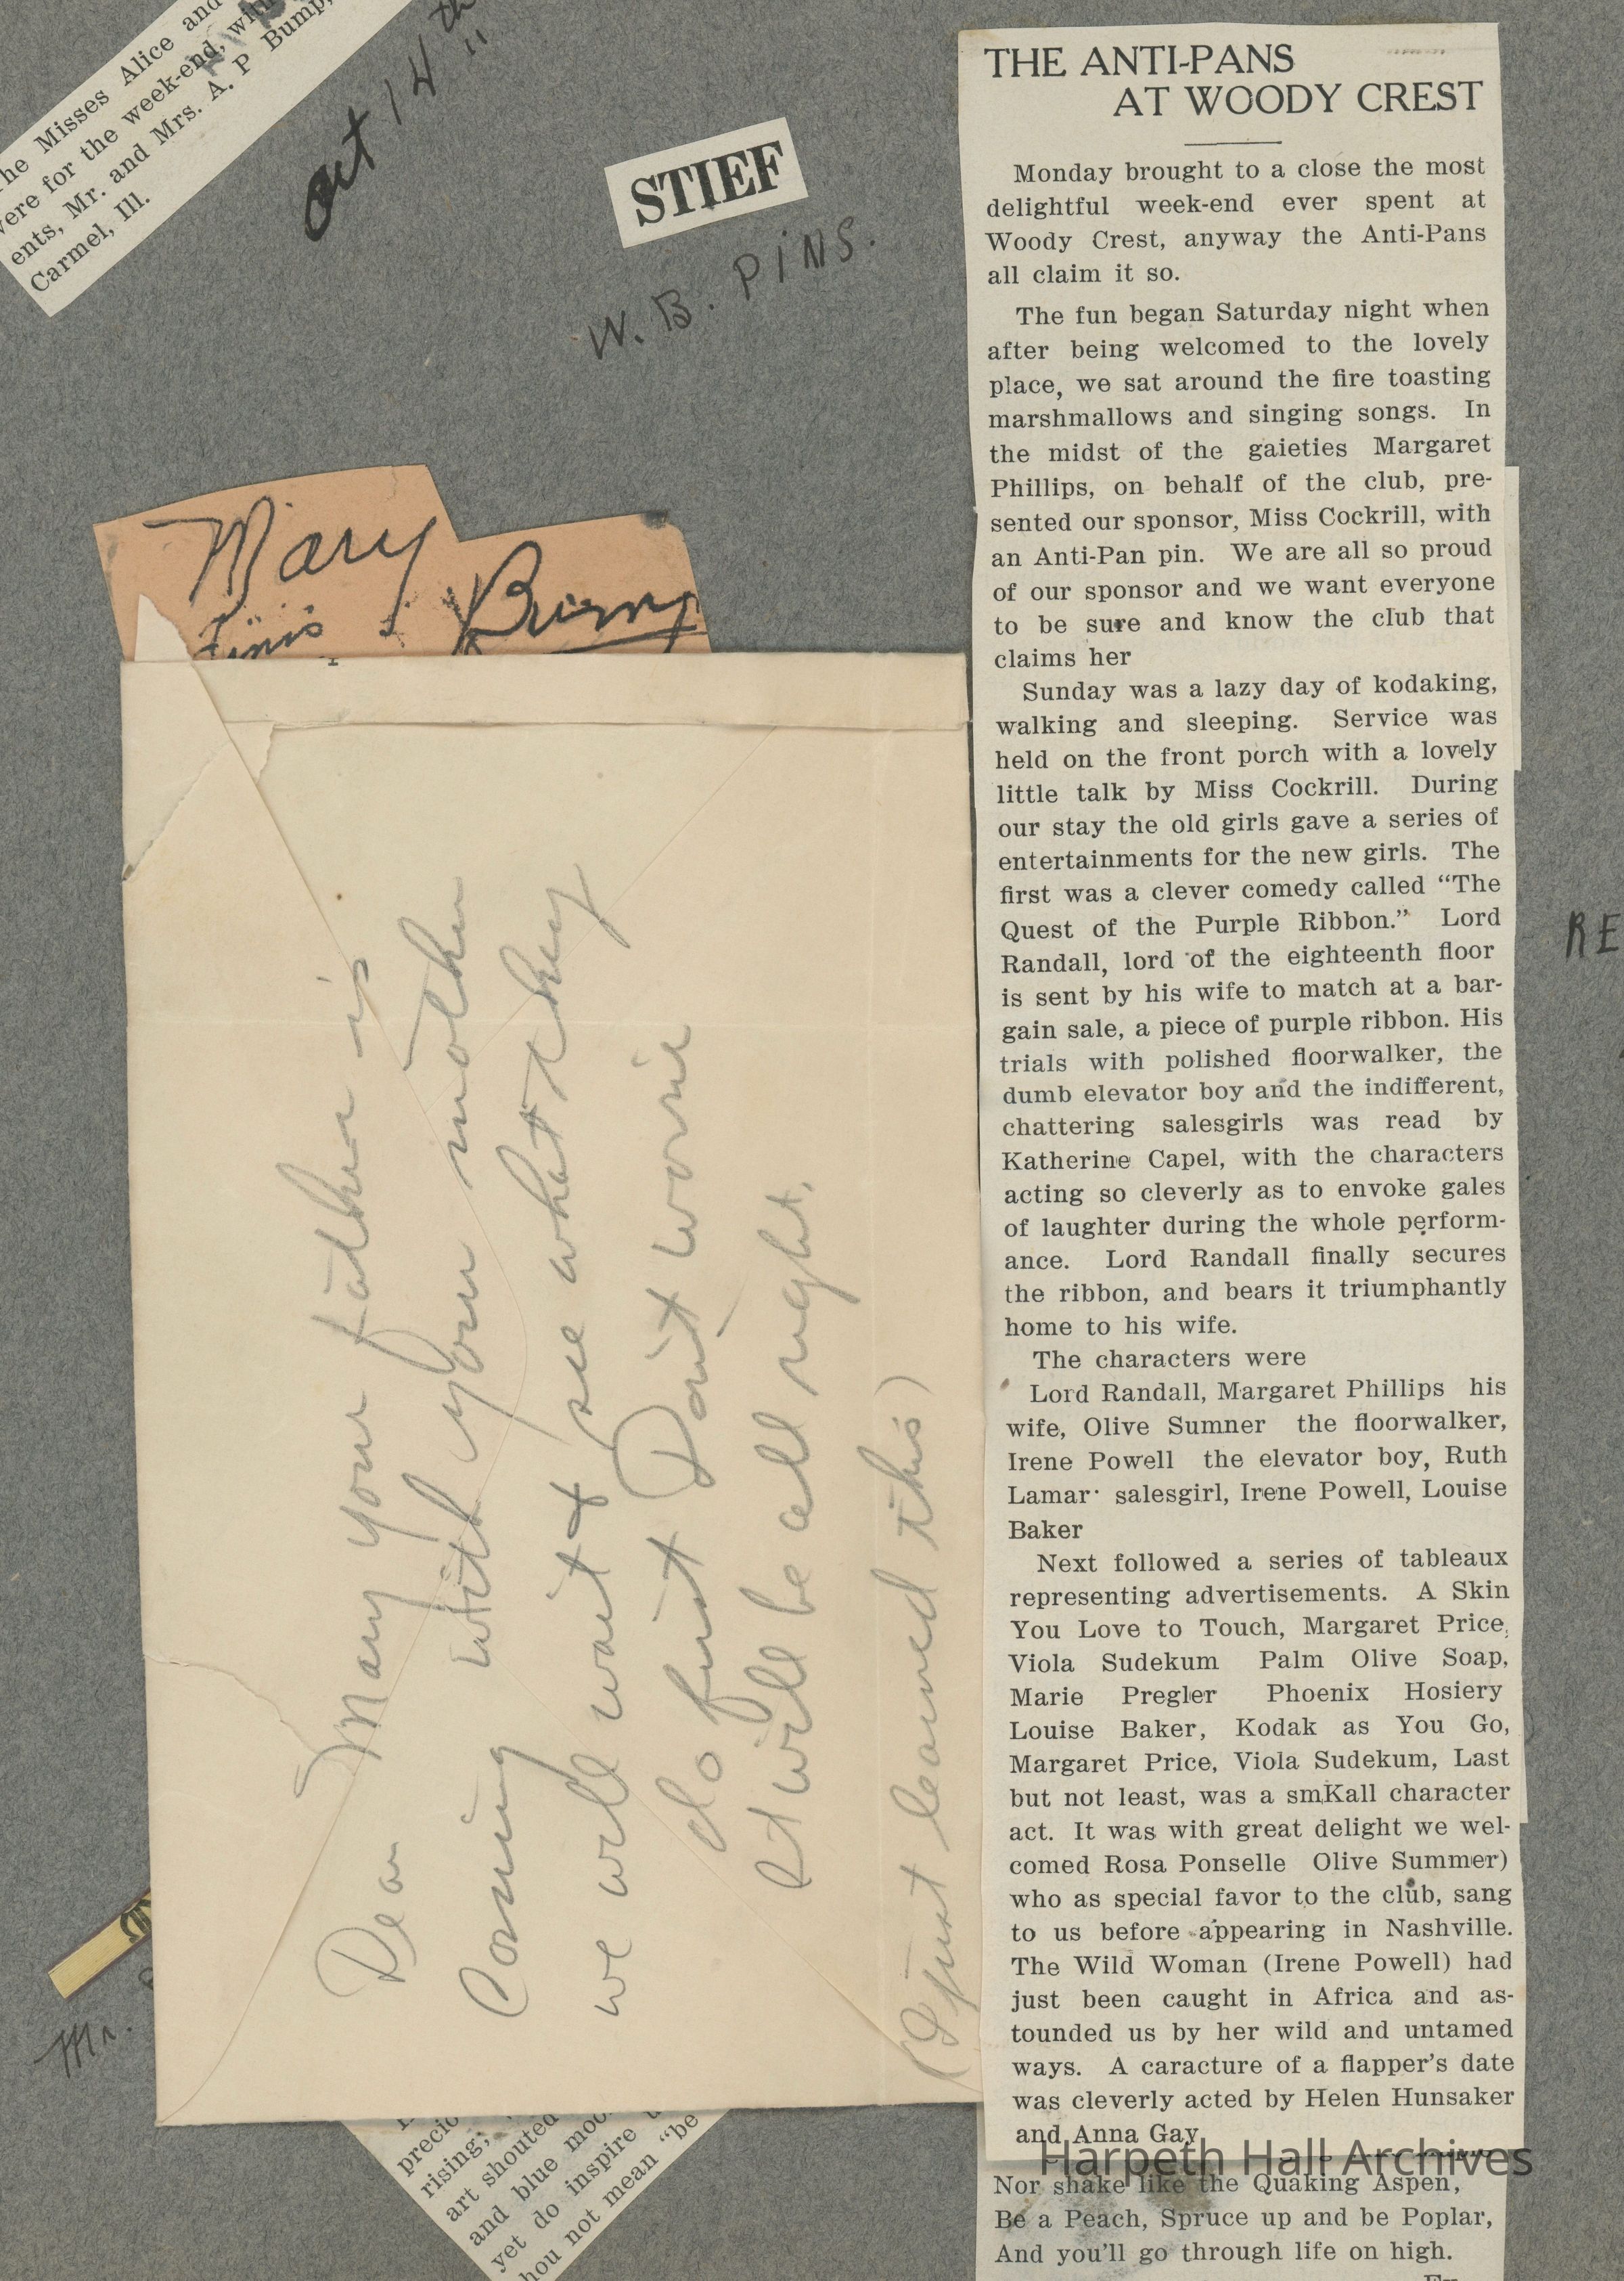 The Misses Alice and
were for the week-end, with
ents, Mr. and Mrs. A. P Bump,
Carmel, Ill.
oct 14th
STIEF
W. B. PINS.
Mary
Bump
Dear Mary your father is
Coming with your mother
we will wait & see what they
do first Don't worrie
It will be all right.
(I just learned this)
Mr.
precio
rising;
art shouted
and blue moo
yet do inspire
hou not mean "be
RE
THE ANTI-PANS
AT WOODY CREST
Monday brought to a close the most
delightful week-end ever spent at
Woody Crest, anyway the Anti-Pans
all claim it so.
The fun began Saturday night when
after being welcomed to the lovely
place, we sat around the fire toasting
marshmallows and singing songs. In
the midst of the gaieties Margaret
Phillips, on behalf of the club, pre-
sented our sponsor, Miss Cockrill, with
an Anti-Pan pin. We are all so proud
of our sponsor and we want everyone
to be sure and know the club that
claims her
Sunday was a lazy day of kodaking,
walking and sleeping. Service was
held on the front porch with a lovely
little talk by Miss Cockrill. During
our stay the old girls gave a series of
entertainments for the new girls. The
first was a clever comedy called "The
Quest of the Purple Ribbon." Lord
Randall, lord of the eighteenth floor
is sent by his wife to match at a bar-
gain sale, a piece of purple ribbon. His
trials with polished floorwalker, the
dumb elevator boy and the indifferent,
chattering salesgirls was read by
Katherine Capel, with the characters
acting so cleverly as to envoke gales
of laughter during the whole perform-
ance. Lord Randall finally secures
the ribbon, and bears it triumphantly
home to his wife.
The characters were
Lord Randall, Margaret Phillips his
wife, Olive Sumner the floorwalker,
Irene Powell the elevator boy, Ruth
Lamar salesgirl, Irene Powell, Louise
Baker
Next followed a series of tableaux
representing advertisements. A Skin
You Love to Touch, Margaret Price,
Viola Sudekum Palm Olive Soap,
Marie Pregler Phoenix Hosiery
Louise Baker, Kodak as You Go,
Margaret Price, Viola Sudekum, Last
but not least, was a smKall character
act. It was with great delight we wel-
comed Rosa Ponselle Olive Summer)
who as special favor to the club, sang
to us before appearing in Nashville.
The Wild Woman (Irene Powell) had
just been caught in Africa and as-
tounded us by her wild and untamed
ways. A caracture of a flapper's date
was cleverly acted by Helen Hunsaker
and Anna Gay
Harpeth Hall Archives
Nor shake like the Quaking Aspen,
Be a Peach, Spruce up and be Poplar,
And you'll go through life on high.